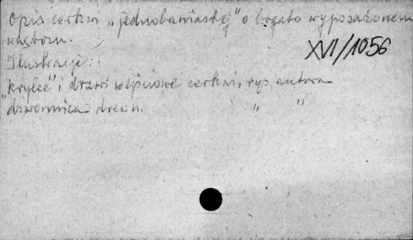 Opis cerkwi „jednobaniastej” o bogato wyposażonem
wnętrzu.
XVI/1056
Ilustracje:
„kryłze” i drzwi wejściowe cerkwi, rys. autora
dzwonnica drewn. " "